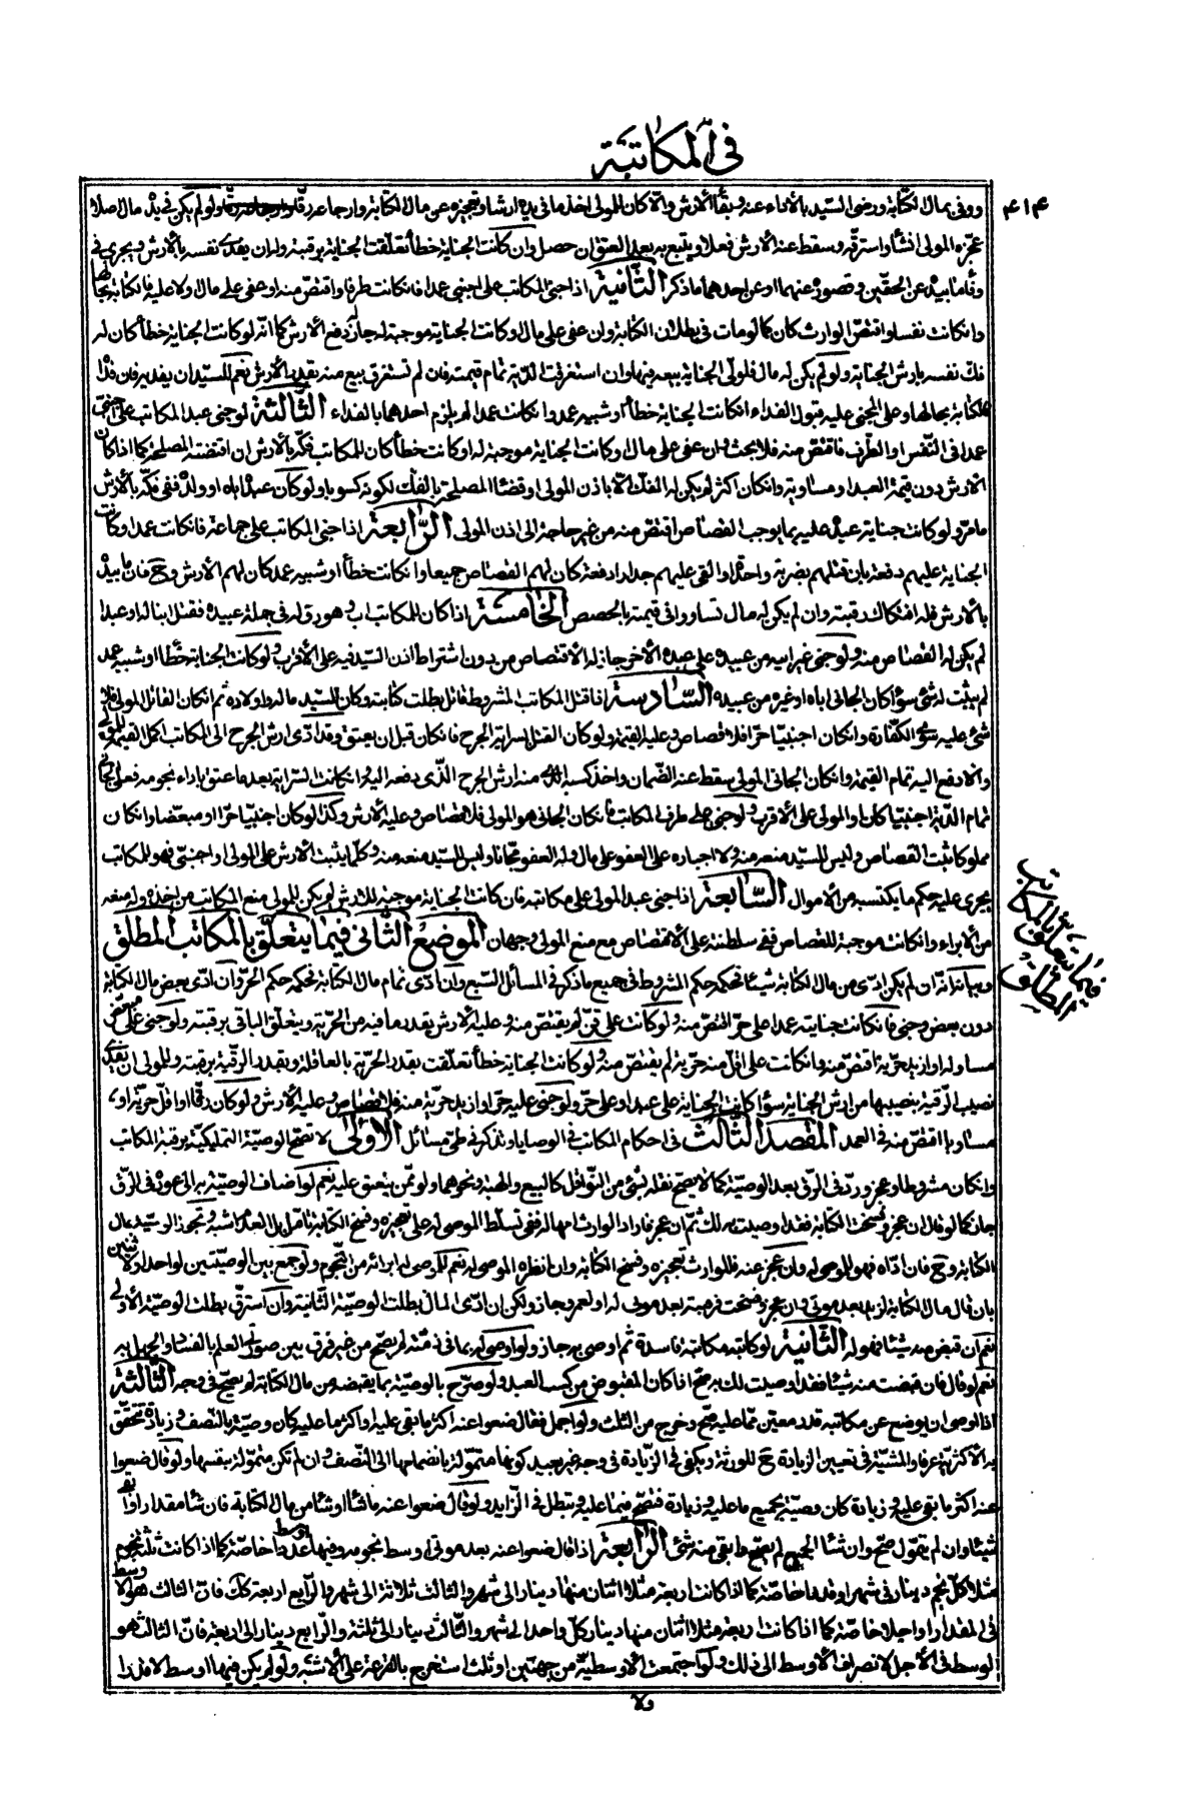 في المكاتبة
٤١٤
ووفى بمال الكتابة ورضى السيّد بالأداء عنه وبقاء الأرش والّا كان للمولى اخذ ما في يده ارشا وتعجيزه عن مال الكتابة وارجاعه رقا ولو لم يكن في يده مال اصلا
عجّزه المولى ان شاء واسترقّه وسقط عنه الأرش فعلا ويتبع به بعد العتق ان حصل وان كانت الجناية خطأ تعلّقت الجناية برقبته وله ان يفدى نفسه بالأرش ويجرى في
وفاء ما بيده عن الحقّين وقصوره عنهما او عن احدهما ما ذكر الثّانية اذا جنى المكاتب على اجنبي عمدا فان كانت طرفا واقتصّ منه او عفى على مال او لا عليه فالكتابة بحالها
وان كانت نفسا واقتصّ الوارث كان كما لو مات في بطلان الكتابة وان عفى على مال او كانت الجناية موجبة له جاز دفع الأرش كما انّه لو كانت الجناية خطأ كان له
فكّ نفسه بارش الجناية ولو لم يكن له مال فلولىّ الجناية بيعه فيها وان استغرقت الدّية تمام قيمته فان لم تستغرق بيع منه بقدر الأرش نعم للسيّد ان يفديه فان فداه
فالكتابة بحالها وعلى المجنى عليه قبول الفداء ان كانت الجناية خطأ او شبيه عمد وان كانت عمدا لم يلزم احدهما بالفداء الثّالثة لو جنى عبد المكاتب على اجنبيّ
عمدا في النّفس او الطّرف فاقتصّ منه فلا بحث وان عفى على مال او كانت الجناية موجبة له او كانت خطأ كان للمكاتب فكّه بالأرش ان اقتضته المصلحة كما اذا كان
الأرش دون قيمة العبد او مساوية وان كان اكثر لم يكن له الفكّ الّا باذن المولى او قضاء المصلحة بالفكّ لكونه كسوبا ولو كان عبده اباه او ولده ففي فكّه بالأرش
ما مرّ ولو كانت جناية عبده عليه بما يوجب القصاص اقتصّ منه من غير حاجة الى اذن المولى الرّابعة اذا جنى المكاتب على جماعة فان كانت عمدا وكانت
الجناية عليهم دفعة بان قتلهم بضربة واحدة او القى عليهم جدارا دفعة كان لهم القصاص جميعا وان كانت خطأ او شبيه عمد كان لهم الأرش وح فان ما بيده
بالأرش فله افتكاك رقبته وان لم يكن له مال تساووا في قيمته بالحصص الخامسة اذا كان للمكاتب اب وهو رق له في جملة عبيده فقتل ابنا له او عبدا
لم يكن له القصاص منه ولو جنى غير ابيه من عبيده على عبده الأخر جاز له الاقتصاص من دون اشتراط اذن السيّد فيه على الأقرب ولو كانت الجناية خطأ او شبيه عمد
لم يثبت له شئ سواء كان الجاني اباه او غيره من عبيده السّادسة اذا قتل المكاتب المشروط قاتل بطلت كتابته وكان للسيّد ماله واولاده ثم ان كان القاتل المولى فلا
شئ عليه سوى الكفّارة وان كان اجنبيّا حرّا فلا قصاص وعليه القيمة ولو كان القتل بسراية الجرح فان كان قبل ان يعتق وقد ادّى ارش الجرح الى المكاتب اكمل القيمة للمولى
والّا دفع اليه تمام القيمة وان كان الجاني المولى سقط عنه الضّمان واخذ كسبه منه ارش الجرح الّذى دفعه اليه وان كانت السّراية بعد ما عتق باداء نجومه فعلى الجاني
تمام الدّية اجنبيّا كان او المولى على الأقرب ولو جنى على طرف المكاتب فان كان الجاني هو المولى فلا قصاص وعليه الأرش وكذا لو كان اجنبيّا حرّا او مبعّضا وان كان
مملوكا ثبت القصاص وليس للسيّد منعه منه ولا اجباره على العفو على مال وله العفو مجّانا وليس للسيّد منعه منه وكلّما يثبت الأرش على المولى او اجنبيّ فهو للمكاتب
يجرى عليه حكم ما يكتسبه من الأموال السّابعة اذا جنى عبد المولى على مكاتبه فان كانت الجناية موجبة للأرش لم يكن للمولى منع المكاتب من اخذه وله منعه
من الأبراء وان كانت موجبة للقصاص ففي سلطنته على الاقتصاص مع منع المولى وجهان الموضع الثّاني فيما يتعلّق بالمكاتب المطلق
وبيانه انّه ان لم يكن ادّى من مال الكتابة شيئا فحكمه حكم المشروط في جميع ما ذكر في المسائل السّبع وان ادّى تمام مال الكتابة فحكمه حكم الحرّ وان ادّى بعض مال الكتابة
دون بعض وجنى فان كانت جنايته عمدا على حرّ اقتصّ منه ولو كانت على قنّ لم يقتصّ منه وعليه الأرش بقدر ما فيه من الحرّية ويتعلّق الباقي برقبته ولو جنى على مبعّض
مساو له او ازيد حرّية اقتصّ منه وان كانت على اقلّ منه حرّية لم يقتصّ منه ولو كانت الجناية خطأ تعلّقت بقدر الحرّية بالعاقلة وبقدر الرقّية برقبته وللمولى ان يفدى
نصيب الرقّية بنصيبها من ارش الجناية سواء كانت الجناية على عبد او على حرّ ولو جنى عليه حرّ او ازيد حرّية منه فلا قصاص وعليه الأرش ولو كان رقّا او اقلّ حرّية او
مساويا اقتصّ منه في العمد المقصد الثّالث في احكام المكاتب في الوصايا ونذكر في طيّ مسائل الأولى لا تصحّ الوصيّة التمليكيّة برقبة المكاتب
وان كان مشروطا وعجز وردّ في الرقّ بعد الوصيّة كما لا يصحّ نقله بشئ من النّواقل كالبيع والهبة ونحوهما ولو ممّن ينعتق عليه نعم لو اضاف الوصيّة به الى عوده في الرقّ
جاز كما لو قال ان عجز وفسخت الكتابة فقد اوصيت به لك ثمّ ان عجز فاراد الوارث امهاله ففي تسلّط الموصى له على تعجيزه وفسخ الكتابة تأمّل بل العدم اشبه وتجوز الوصيّة بمال
الكتابة وح فان ادّاه فهو للموصى له وان عجز عنه فللوارث تعجيزه وفسخ الكتابة وان انظره الموصى له نعم للموصى له ابرائه من النّجوم ولو جمع بين الوصيّتين لواحد او لاثنين
بان قال مال الكتابة لزيد بعد موتي وان عجز وفسخت فرقبته بعد موتي له او لعمرو جاز ولكن ان ادّى المال بطلت الوصيّة الثّانية وان استرقّ بطلت الوصيّة الأولى
نعم ان قبض منه شيئا فهو له الثّانية لو كاتبه مكاتبة فاسدة ثم اوصى به جاز ولو اوصى له بما في ذمّته لم يصحّ من غير فرق بين صورتي العلم بالفساد والجهل به
نعم لو قال فان قبضت منه شيئا فقد اوصيت لك به صحّ اذا كان المقبوض من كسب العبد ولو صرّح بالوصيّة بما يقبضه من مال الكتابة لم يصحّ في وجه الثّالثة
اذا اوصى ان يوضع عن مكاتبه قدر معيّن ممّا عليه صحّ وخرج من الثلث ولو اجمل فقال ضعوا عنه اكثر ما بقي عليه او اكثر ما عليه كان وصيّة بالنّصف وزيادة تتحقّق
به الأكثريّة عرفا والمشيّة في تعيين الزيادة ح للورثة ويكفي في الزّيادة في وجه غير بعيد كونها متموّلة بانضمامها الى النّصف وان لم تكن متموّلة بنفسها ولو قال ضعوا
عنه اكثر ما بقي عليه وزيادة كان وصيّة بجميع ما عليه وزيادة فتصحّ فيما عليه وتبطل في الزّايد ولو قال ضعوا عنه ما شاء او شاء من مال الكتابة فان شاء مقدارا وابقى
شيئا وان لم يتموّل صحّ وان شاء الجميع لم يصحّ وابقى منه شئ الرّابعة اذا قال ضعوا عنه بعد موتي اوسط نجومه وفيها اوسط عددا خاصّة كما اذا كانت ثلثة نجوم
مثلا كلّ نجم دينار في شهر او قدرا خاصّة كما اذا كانت اربعة مثلا اثنان منها دينار الى شهر والثالث ثلاثة الى شهر والرّابع اربعة كك فانّ الثالث هو الأوسط
في المقدار او اجلا خاصّة كما اذا كانت اربعة مثلا اثنان منها دينار كلّ واحد الى شهر والثّالث دينار الى ثلثة والرّابع دينار الى اربعة فانّ الثالث هو
الوسط في الأجل لانصراف الأوسط الى ذلك ولو اجتمعت الأوسطيّة من جهتين او ثلث استخرج بالقرعة على الأشبه ولو لم يكن فيها اوسط لا قدرا
ولا
فيما يتعلّق بالمكاتب المطلق